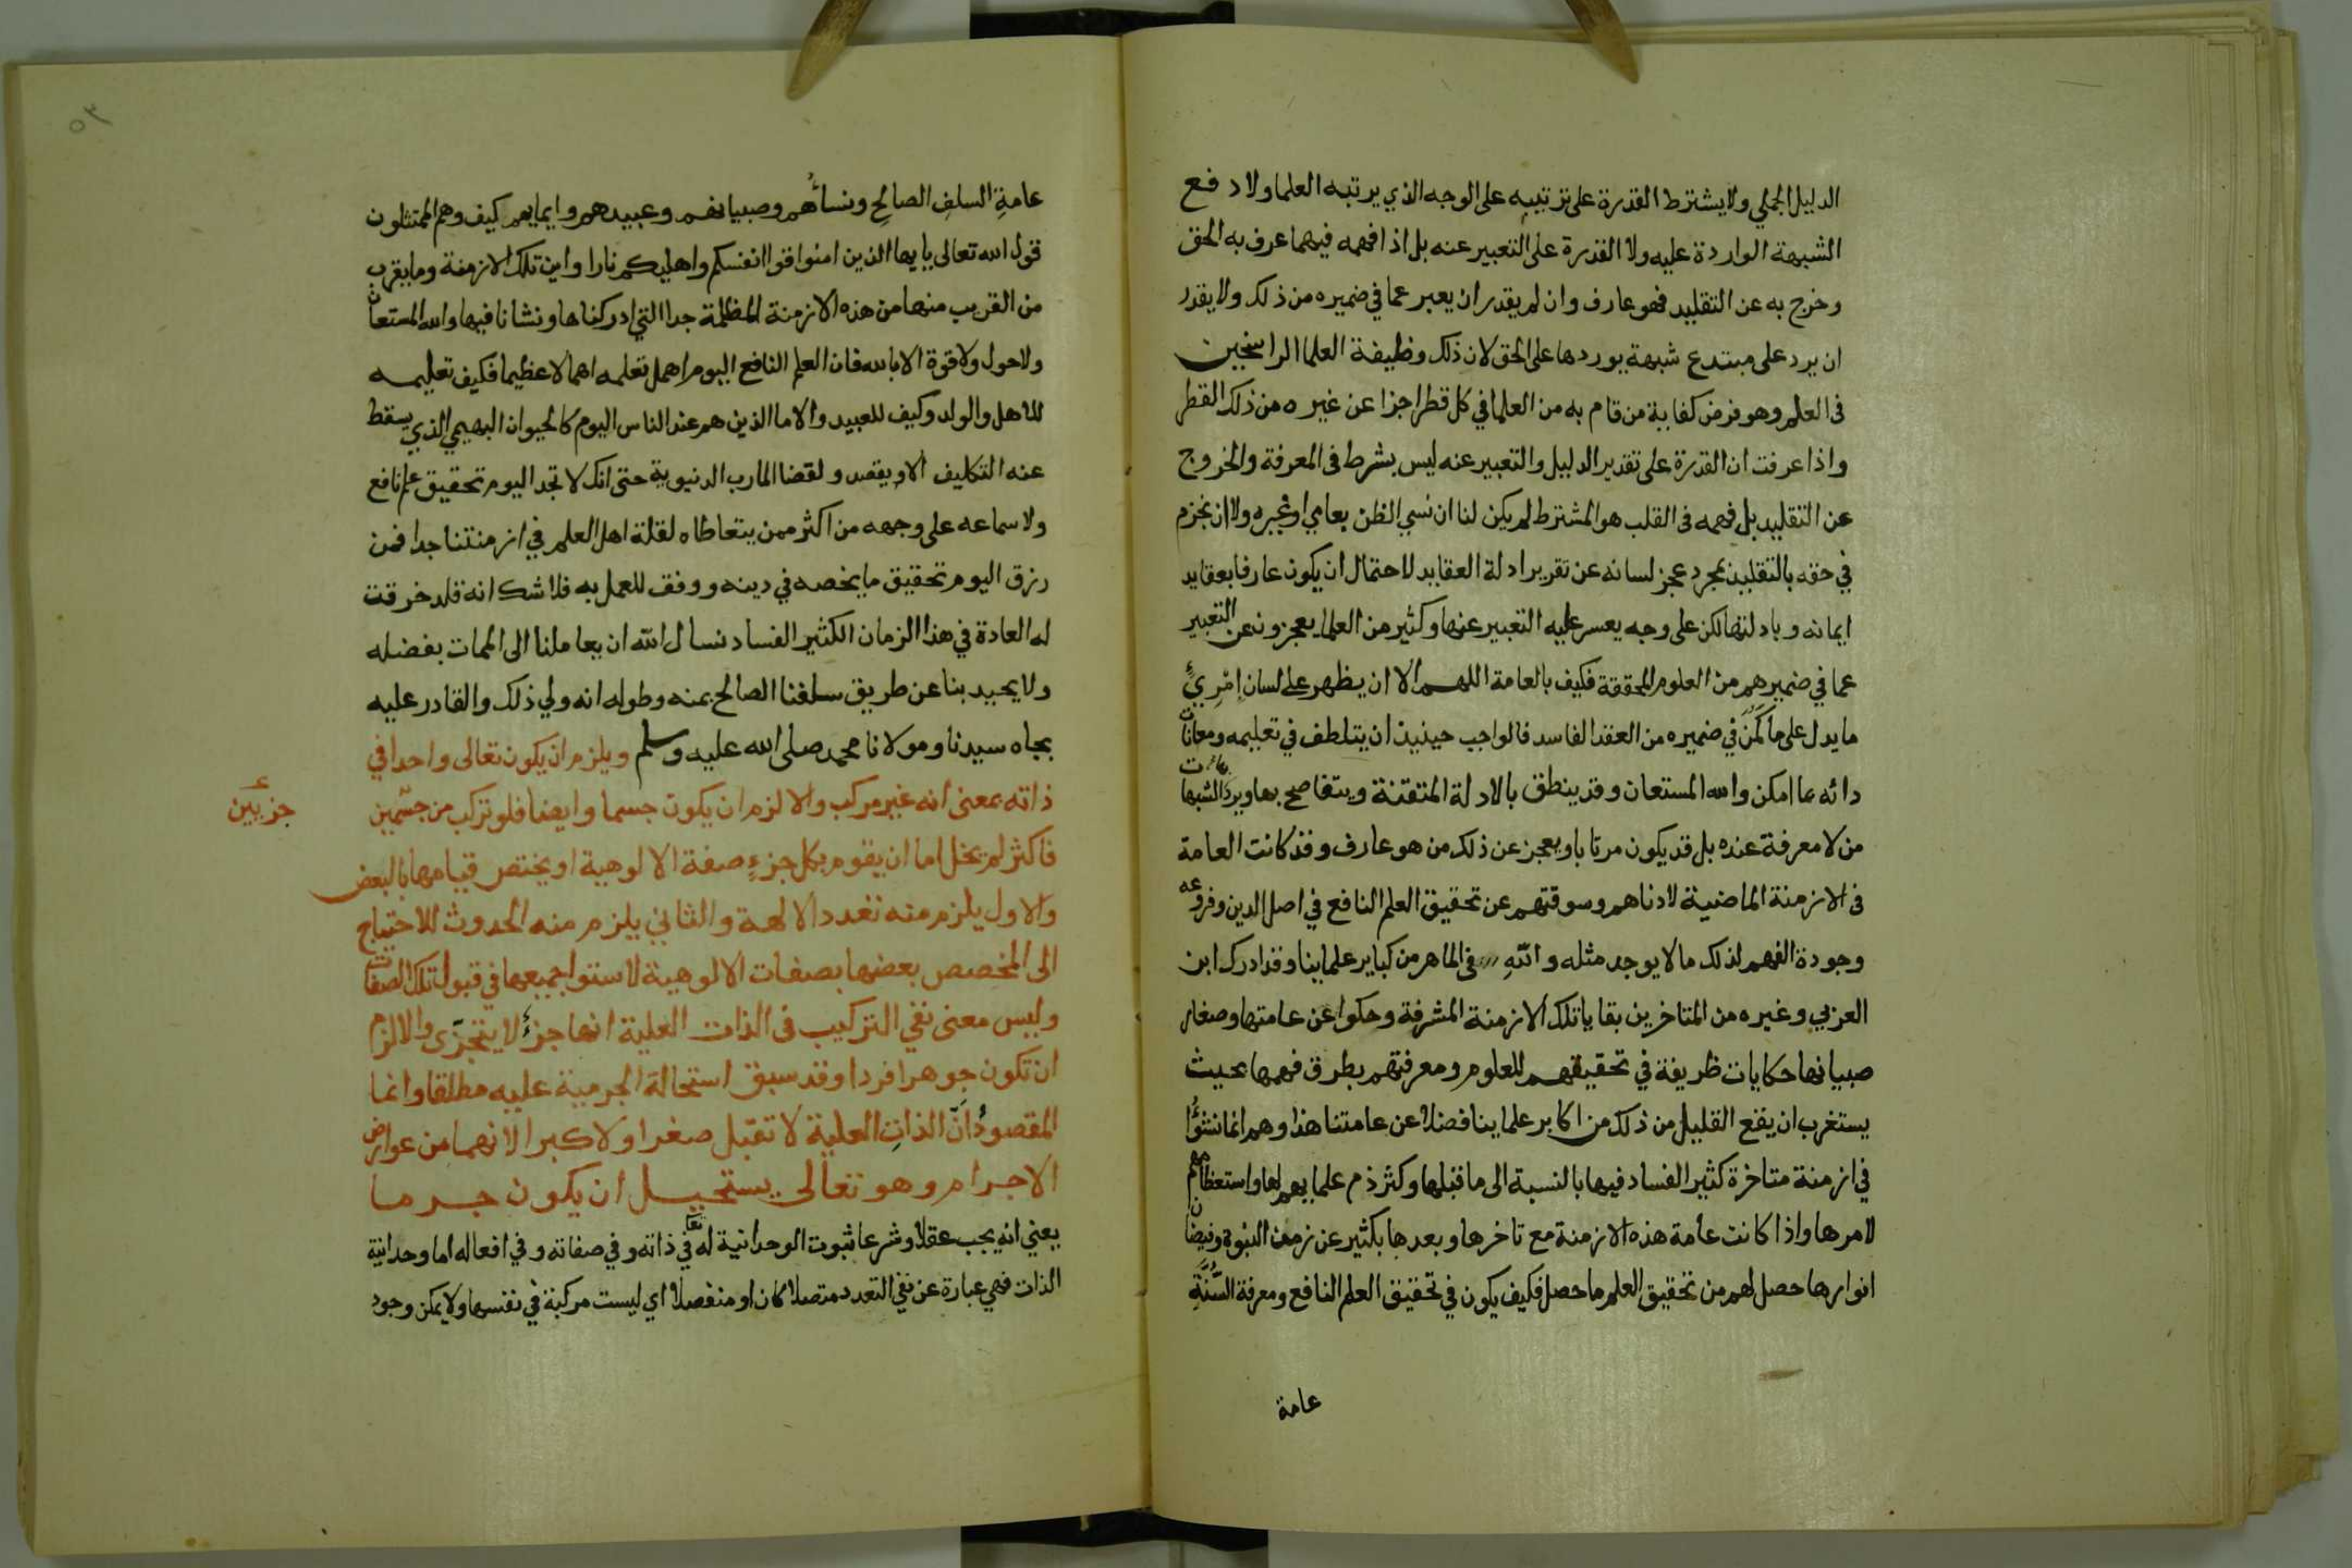 الدليل الجملي ولا يشترط القدرة على ترتيبه على الوجه الذي يرتبه العلما ولا دفع
الشبهة الواردة عليه ولا القدرة على التعبير عنه بل اذا فهمه فيهما عرف به الحق
وخرج به عن التقليد فهو عارف وان لم يقدر ان يعبر عما في ضميره من ذلك ولا يقدر
ان يرد على مبتدع شبهة يوردها على الحق لان ذلك وظيفة العلما الراسخين
في العلم وهو فرض كفاية من قام به من العلما في كل قطر اجزا عن غيره من ذلك القطر
واذا عرفت ان القدرة على تقدير الدليل والتعبير عنه ليس بشرط في المعرفة والخروج
عن التقليد بل فهمه في القلب هو المشترط لم يكن لنا ان نسي الظن بعامي او غيره ولا ان نجزم
في حقه بالتقليد بمجرد عجز لسانه عن تقرير ادلة العقايد لاحتمال ان يكون عارفا بعقايد
ايمانه وبادلتها لكن على وجه يعسر عليه التعبير عنها وكثير من العلما يعجزون عن التعبير
عما في ضميرهم من العلوم المحققة فكيف بالعامة اللهم الا ان يظهر على لسان امرئ
ما يدل على ما كمن في ضميره من العقد الفاسد فالواجب حينيذ ان يتلطف في تعليمه ومعانات
دائه بما امكن والله المستعان وقد ينطق بالادلة المتقنة ويتفاصح بها ويرد الشبهات
من لا معرفة عنده بل قد يكون مرتابا ويعجز عن ذلك من هو عارف وقد كانت العامة
في الازمنة الماضية لادناهم وسوقتهم عن تحقيق العلم النافع في اصل الدين وفروعه
وجودة الفهم لذلك ما لا يوجد مثله والله في الماهر من كباير علماينا وقد ادرك ابن
العربي وغيره من المتاخرين بقايا تلك الازمنة المشرفة وحكوا عن عامتها وصغار
صبيانها حكايات ظريفة في تحقيقهم للعلوم ومعرفتهم بطرق فهمها بحيث
يستغرب ان يقع القليل من ذلك من اكابر علماينا فضلا عن عامتنا هذا وهم انما نشؤا
في ازمنة متاخرة كثير الفساد فيها بالنسبة الى ما قبلها وكثر ذم علمايهم لها واستعظامهم
لامرها واذا كانت عامة هذه الازمنة مع تاخرها وبعدها بكثير عن زمن النبوة وفيضان
انوارها حصل لهم من تحقيق العلم ما حصل فكيف يكون في تحقيق العلم النافع ومعرفة السنة
عامة
عامة السلف الصالح ونساؤهم وصبيانهم وعبيدهم وايمايهم كيف وهم الممتثلون
قول الله تعالى يا يها الذين امنوا قوا انفسكم واهليكم نارا واين تلك الازمنة وما يقرب
من القريب منها من هذه الازمنة المظلمة جدا التي ادركناها ونشانا فيها والله المستعان
ولا حول ولا قوة الا بالله فان العلم النافع اليوم اهمل تعلمه اهمالا عظيما فكيف تعليمه
للاهل والولد وكيف للعبيد والاما الذين هم عند الناس اليوم كالحيوان البهيمي الذي يسقط
عنه التكليف الا ويقصد ولقضا المارب الدنيوية حتى انك لا تجد اليوم تحقيق علم نافع
ولا سماعه على وجهه من اكثر ممن يتعاطاه لقلة اهل العلم في ازمنتنا جدا فمن
رزق اليوم تحقيق ما يخصه في دينه ووفق للعمل به فلا شك انه قد خرقت
له العادة في هذا الزمان الكثير الفساد نسال الله ان يعاملنا الى الممات بفضله
ولا يحيد بنا عن طريق سلفنا الصالح بمنه وطوله انه ولي ذلك والقادر عليه
بجاه سيدنا ومولانا محمد صلى الله عليه وسلم ويلزم ان يكون تعالى واحدا في
ذاته بمعنى انه غير مركب والا لزم ان يكون جسما وايضا فلو تركب من جسمين
جزيين
فاكثر لم يخل اما ان يقوم بكل جزء صفة الالوهية او يختص قيامها بالبعض
والاول يلزم منه تعدد الالهة والثاني يلزم منه الحدوث للاحتياج
الى المخصص بعضها بصفات الالوهية لاستوا جميعها في قبول تلك الصفات
وليس معنى نفي التركيب في الذات العلية انها جزء لا يتجزى والا لزم
ان تكون جوهرا فردا وقد سبق استحالة الجرمية عليه مطلقا وانما
المقصود ان الذات العلية لا تقبل صغرا ولا كبرا لانهما من عوارض
الاجرام وهو تعالى يستحيل ان يكون جرما
يعني انه يجب عقلا وشرعا ثبوت الوحدانية له تعا في ذاته وفي صفاته وفي افعاله اما وحدانية
الذات فهي عبارة عن نفي التعدد متصلا كان او منفصلا اي ليست مركبة في نفسها ولا يمكن وجود